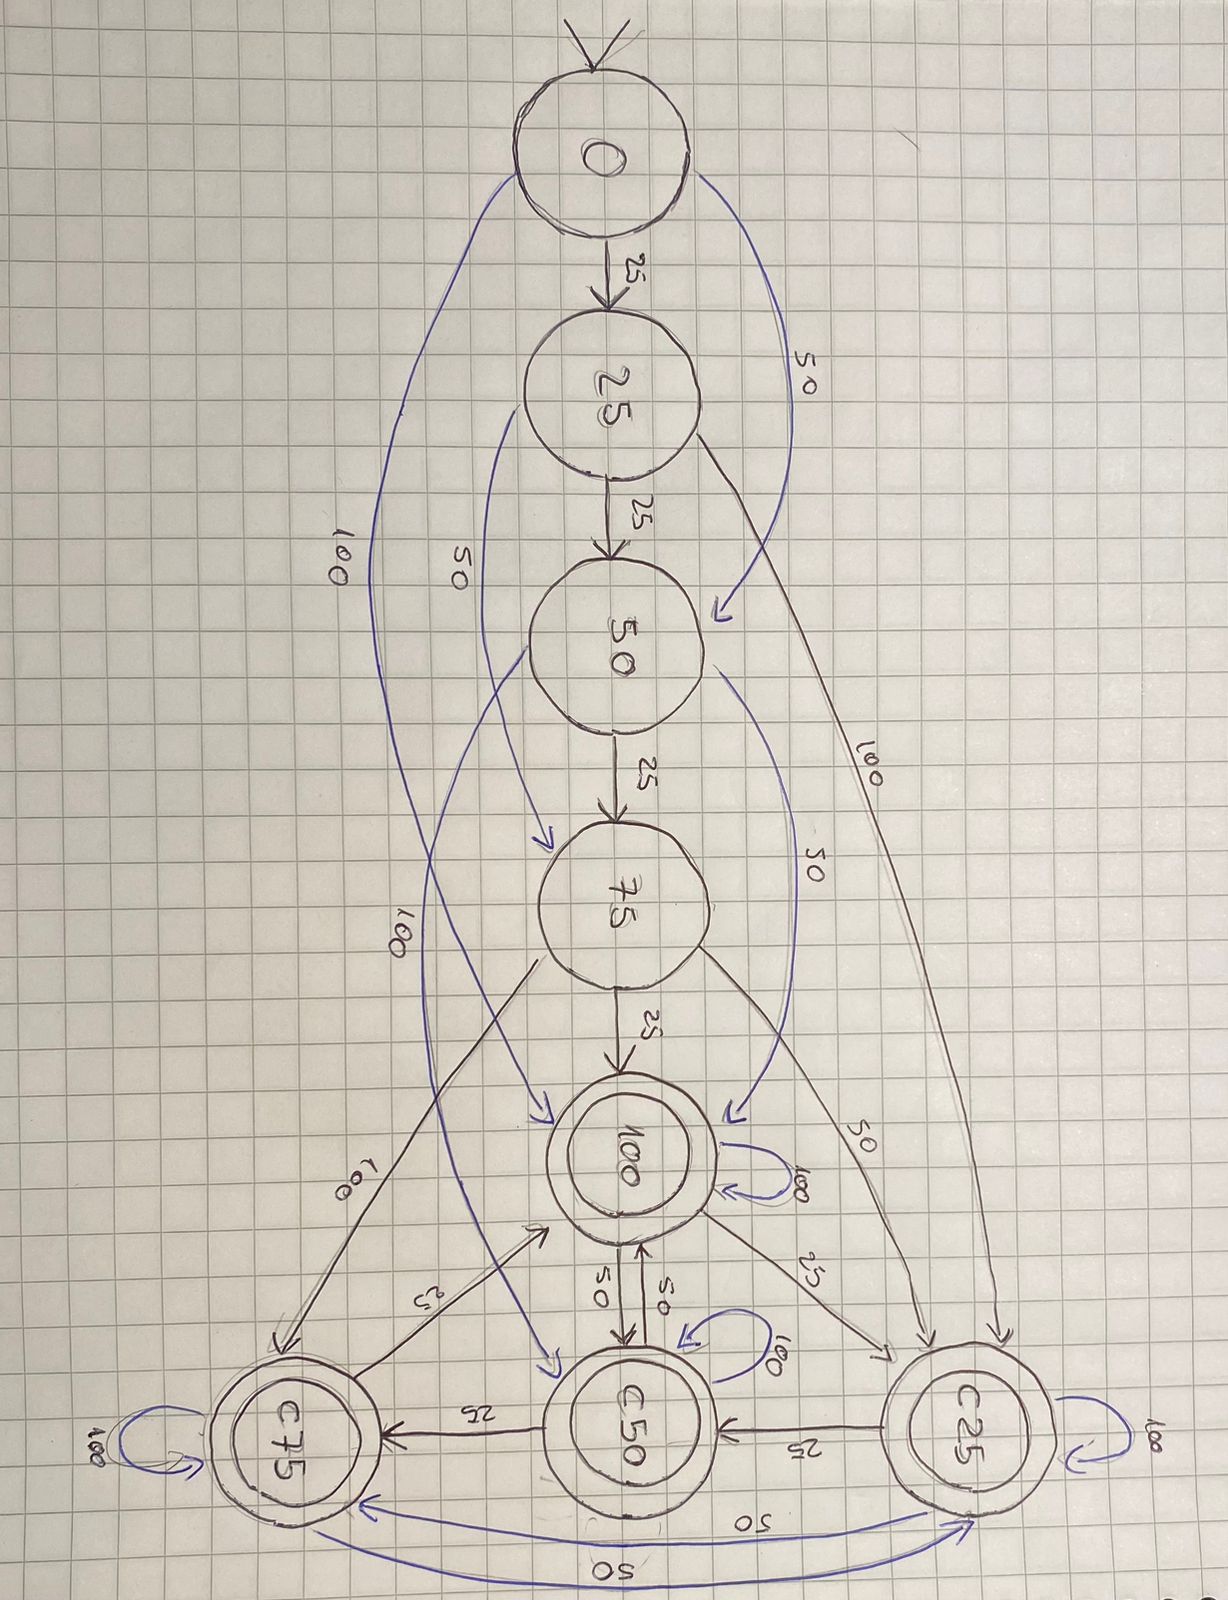 100
C25
100
50
50
50
25
25
100
100
50
50
0
25
25
25
50
25
75
25
100
50
50
C50
50
25
50
100
25
100
100
C75
100